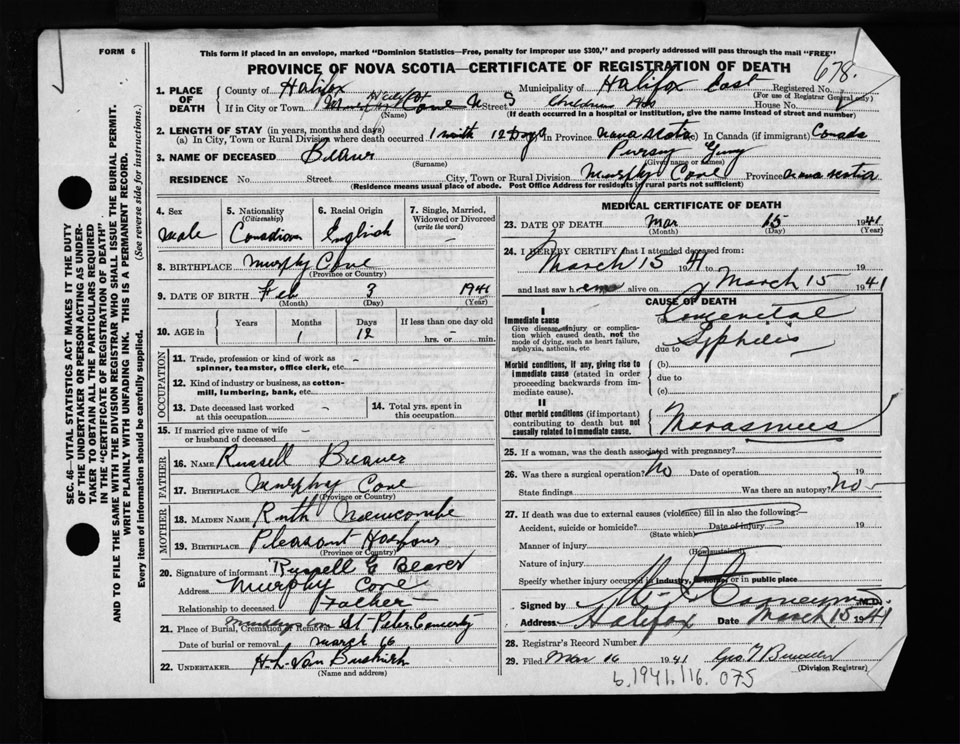 FORM 6
This form if placed in an envelope, marked "Dominion Statistics—Free, penalty for improper use $300," and properly addressed will pass through the mail "FREE"
PROVINCE OF NOVA SCOTIA—CERTIFICATE OF REGISTRATION OF DEATH
678.
1. PLACE OF DEATH
County of Halifax Municipality of Halifax East Registered No.
(For use of Registrar General only)
If in City or Town Cove N S Street Childrens Hos House No.
(Name) (If death occurred in a hospital or institution, give the name instead of street and number)
2. LENGTH OF STAY (in years, months and days)
(a) In City, Town or Rural Division where death occurred 1 month 12 Days In Province Nova Scotia (c) In Canada (if immigrant) Canada
3. NAME OF DECEASED Beaver
(Surname) (Given name or names)
RESIDENCE No. Street. City, Town or Rural Division Murphy Cove Province Nova Scotia
(Residence means usual place of abode. Post Office Address for residents in rural parts not sufficient)
4. Sex
Male
5. Nationality (Citizenship)
Canadian
6. Racial Origin
English
7. Single, Married, Widowed or Divorced (write the word)
–
8. BIRTHPLACE Murphy Cove
(Province or Country)
9. DATE OF BIRTH Feb 3 1941
(Month) (Day) (Year)
10. AGE in Years Months Days If less than one day old
1 12 hrs. or min.
OCCUPATION
11. Trade, profession or kind of work as spinner, teamster, office clerk, etc. –
12. Kind of industry or business, as cotton-mill, lumbering, bank, etc.
13. Date deceased last worked at this occupation –
14. Total yrs. spent in this occupation
15. If married give name of wife or husband of deceased –
FATHER
16. NAME Russell Beaver
17. BIRTHPLACE Murphy Cove
(Province or Country)
MOTHER
18. MAIDEN NAME Ruth Newcombe
19. BIRTHPLACE Pleasant Harbour
(Province or Country)
20. Signature of informant Russell G Beaver
Address Murphy Cove
Relationship to deceased Father
21. Place of Burial, Cremation or Removal St Peter
Date of burial or removal March 16
22. UNDERTAKER H. L. Van Buskirk
(Name and address)
MEDICAL CERTIFICATE OF DEATH
23. DATE OF DEATH Mar 15 1941
(Month) (Day) (Year)
24. I HEREBY CERTIFY that I attended deceased from:
March 15 1941 to 19
and last saw him alive on March 15 1941
CAUSE OF DEATH
I
Immediate cause
Give disease, injury or complication which caused death, not the mode of dying, such as heart failure, asphyxia, asthenia, etc.
(a) Congenital
due to Syphilis
Morbid conditions, if any, giving rise to immediate cause (stated in order proceeding backwards from immediate cause).
(b)
due to
(c)
II
Other morbid conditions (if important) contributing to death but not causally related to immediate cause.
Marasmus
25. If a woman, was the death associated with pregnancy?
26. Was there a surgical operation? No Date of operation 19
State findings Was there an autopsy? No –
27. If death was due to external causes (violence) fill in also the following?
Accident, suicide or homicide? Date of injury 19
(State which)
Manner of injury
(How sustained)
Nature of injury
Specify whether injury occurred in industry, in home or in public place
Signed by M.D.
Address Halifax Date March 15 1941
28. Registrar's Record Number
29. Filed Mar 16 1941 Geo
(Division Registrar)
b.1941.116.075
SEC. 46—VITAL STATISTICS ACT MAKES IT THE DUTY
OF THE UNDERTAKER OR PERSON ACTING AS UNDERTAKER TO OBTAIN ALL THE PARTICULARS REQUIRED
IN THE "CERTIFICATE OF REGISTRATION OF DEATH"
AND TO FILE THE SAME WITH THE DIVISION REGISTRAR WHO SHALL ISSUE THE BURIAL PERMIT.
WRITE PLAINLY WITH UNFADING INK. THIS IS A PERMANENT RECORD.
Every item of information should be carefully supplied. (See reverse side for instructions.)